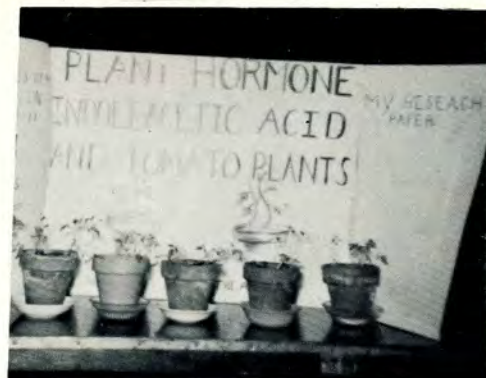 PLANT HORMONE
INDOLEACETIC ACID
AND TOMATO PLANTS
MY RESEACH
PAPER